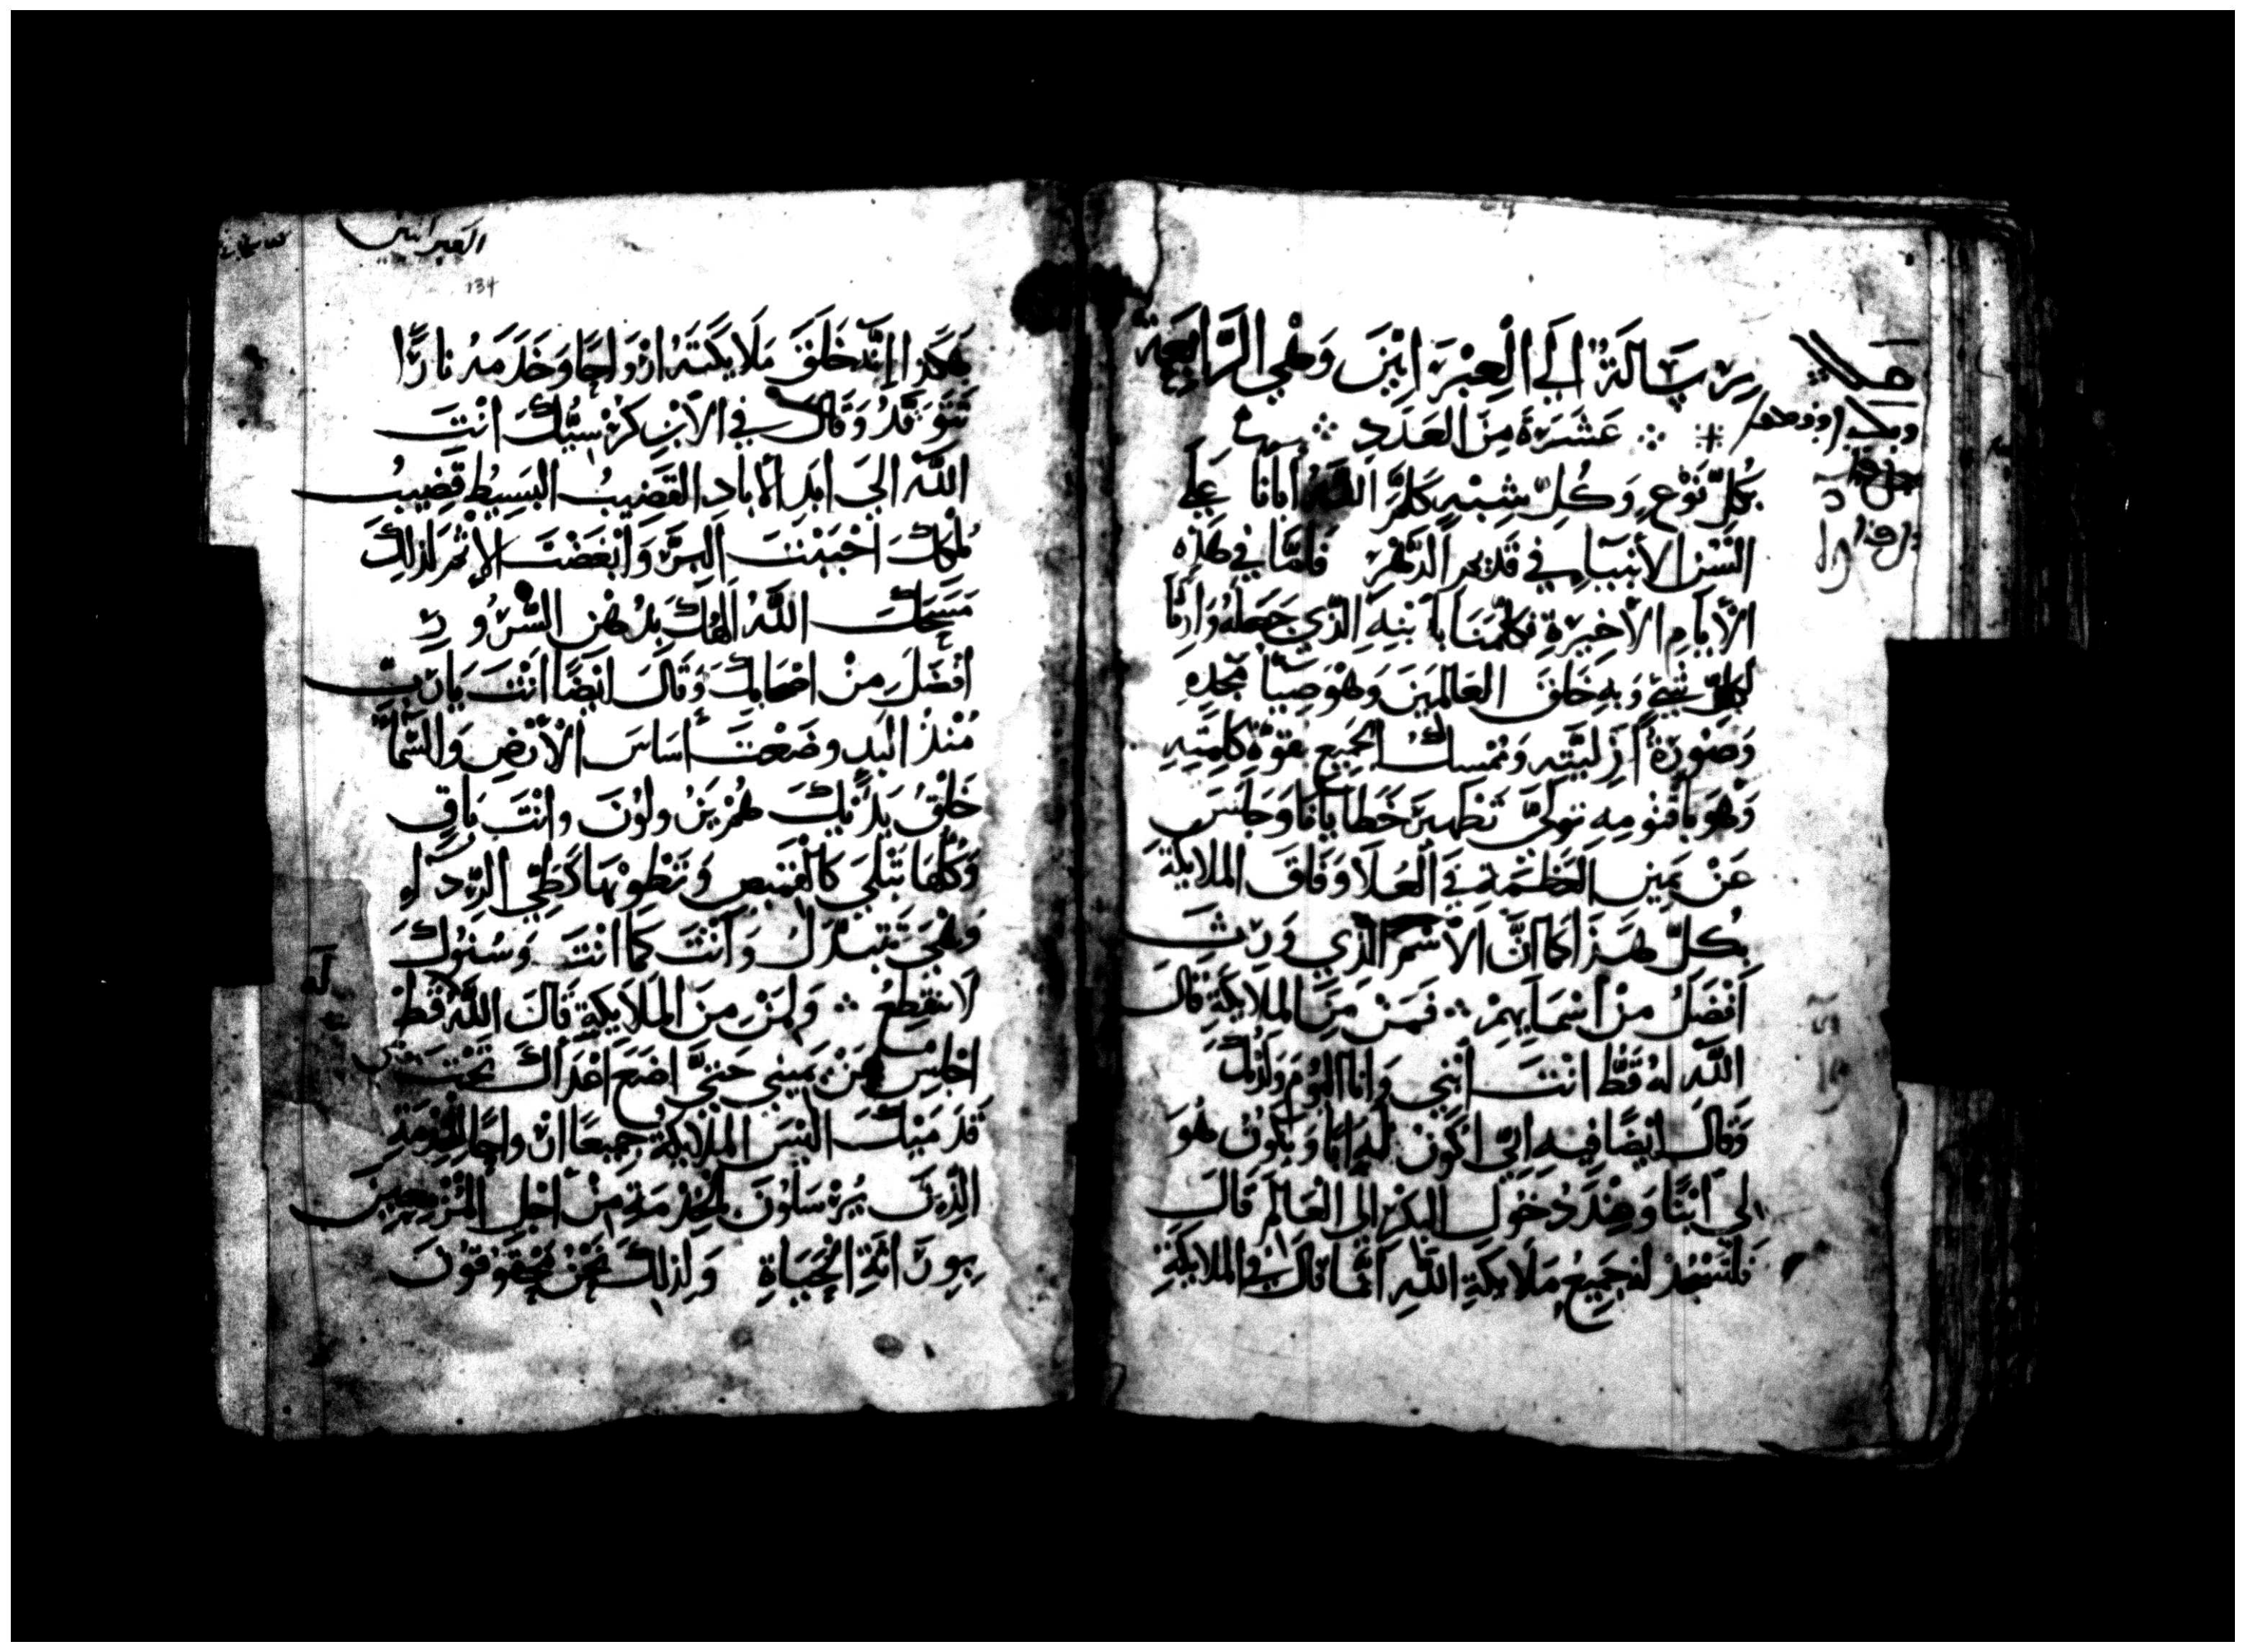 رِسَالَةٌ الَي الْعِبْرَانِيْنَ وَهْيِ الرَّابِعَة
عَشَرَةَ مِنَ العَدَدِ
بِكُلِّ نَوْعٍ وَكُلِّ شِبْهٍ كَلَّمَ اللَّهُ أبَانَا عَلَي
السُن الأنبيَاءِ فِي قَدِيمِ الدَّهْرِ فَامَّا فِي هَذِه
الأيامِ الأخِيرَةِ فكلَّمَنَا بأبنِهِ الَّذِي جَعَلَهُ وَارِثًا
لِكُلِّ شَيْءٍ وَبِهِ خَلَقَ العَالَمِينَ وَهْوَ ضِيَآ مَجْدِهِ
وَصُورَةُ أزَلِيَّتِه وَمُمْسِكُ الجَمِيعِ بقوَّةِ كَلِمَتِهِ
وَهْوَ بأقْنُومِهِ تَوَلَّيَ تَطهِيرَ خَطَايَانَا وَجَلَسَ
عَنْ يَمِينِ العَظَمَةِ فِي العُلَا وَفَاقَ الملَايكَةِ
بِكُلِّ هَذَا كَمَا انَّ الأسْمَ الَّذِي وَرِثَ
أفْضَلُ مِنْ أسْمَايِهِمْ فَمَنْ مِنَ الملَايكَةِ قَالَ
اللَّه لهُ قَطُّ انتَ أبْنِي وَانَا اليَوْمَ وَلَدْتُكَ
وَقَالَ ايْضًا فِيهِ انِّي اكُونُ لَهُ ابًا وَيَكُونُ هُوَ
لِي أبْنًا وَعِنْدَ دُخُولِ البِكْرِ الي العَالَمِ قَالَ
فَلتَسْجُد لهُ جَمِيعُ مَلَايكَةِ اللَّهِ انَّمَا قَالَ فِي الملايكَةِ
العبرانيين
134
هَكَذا انَّه خَلَقَ مَلَايكَتَهُ ارْوَاحًا وَخَدَمَهُ نارًا
تَتَوَقَّدُ وَقَالَ فِي الأبْنِ كُرْسِيُّكَ انْتَ
اللَّه الَي ابَدِ الأبَادِ القَضِيبُ البَسِيطُ قَضِيبُ
مُلْكِكَ احْبَبْتَ البِرَّ وَابْغَضْتَ الإثْمَ لِذَلِكَ
مَسَحَكَ اللَّهُ الَهُكَ بِدُهْنِ السُّرُورِ
أفْضَلَ مِنْ اصْحَابِكَ وَقَالَ ايْضًا انْتَ يَا رَبّ
مُنْذُ البَدِ وضَعْتَ أسَاسَ الأرْضِ وَالسَّمَآ
خَلْقُ يَدَيْكَ هُمْ يَزُولُونَ وانْتَ بَاقٍ
وَكُلّهَا تَبْلَي كَالقَمِيصِ وَتَطْوِيْهَا كَطَيِّ الرِّدَآءِ
وَهْيَ تَتَبَدَّلُ وَأنْتَ كَمَا انْتَ وَسُنُوكَ
لَا تنقَطِعُ وَلِمَنْ مِنَ المَلَايكَةِ قَالَ اللَّهُ قَطُّ
اجْلِس عَنْ يَمِينِي حَتَّيَ اضَعَ اعْدَآكَ تَحْتَ
قَدَمَيْكَ الَيْسَ المَلَايكَةِ جَمِيعًا ارْواحًا لِلخِدْمَةِ
الَّذِينَ يُرْسَلُونَ لِلْخِدْمَةِ مِنْ اجْلِ المُزْمِعِينَ
يَرِثُونَ الْحَيَاة وَلِذَلِكَ نَحْنُ مَحْقُوقُونَ